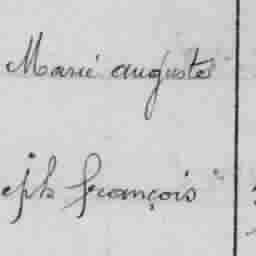 Marie auguste
eph françois